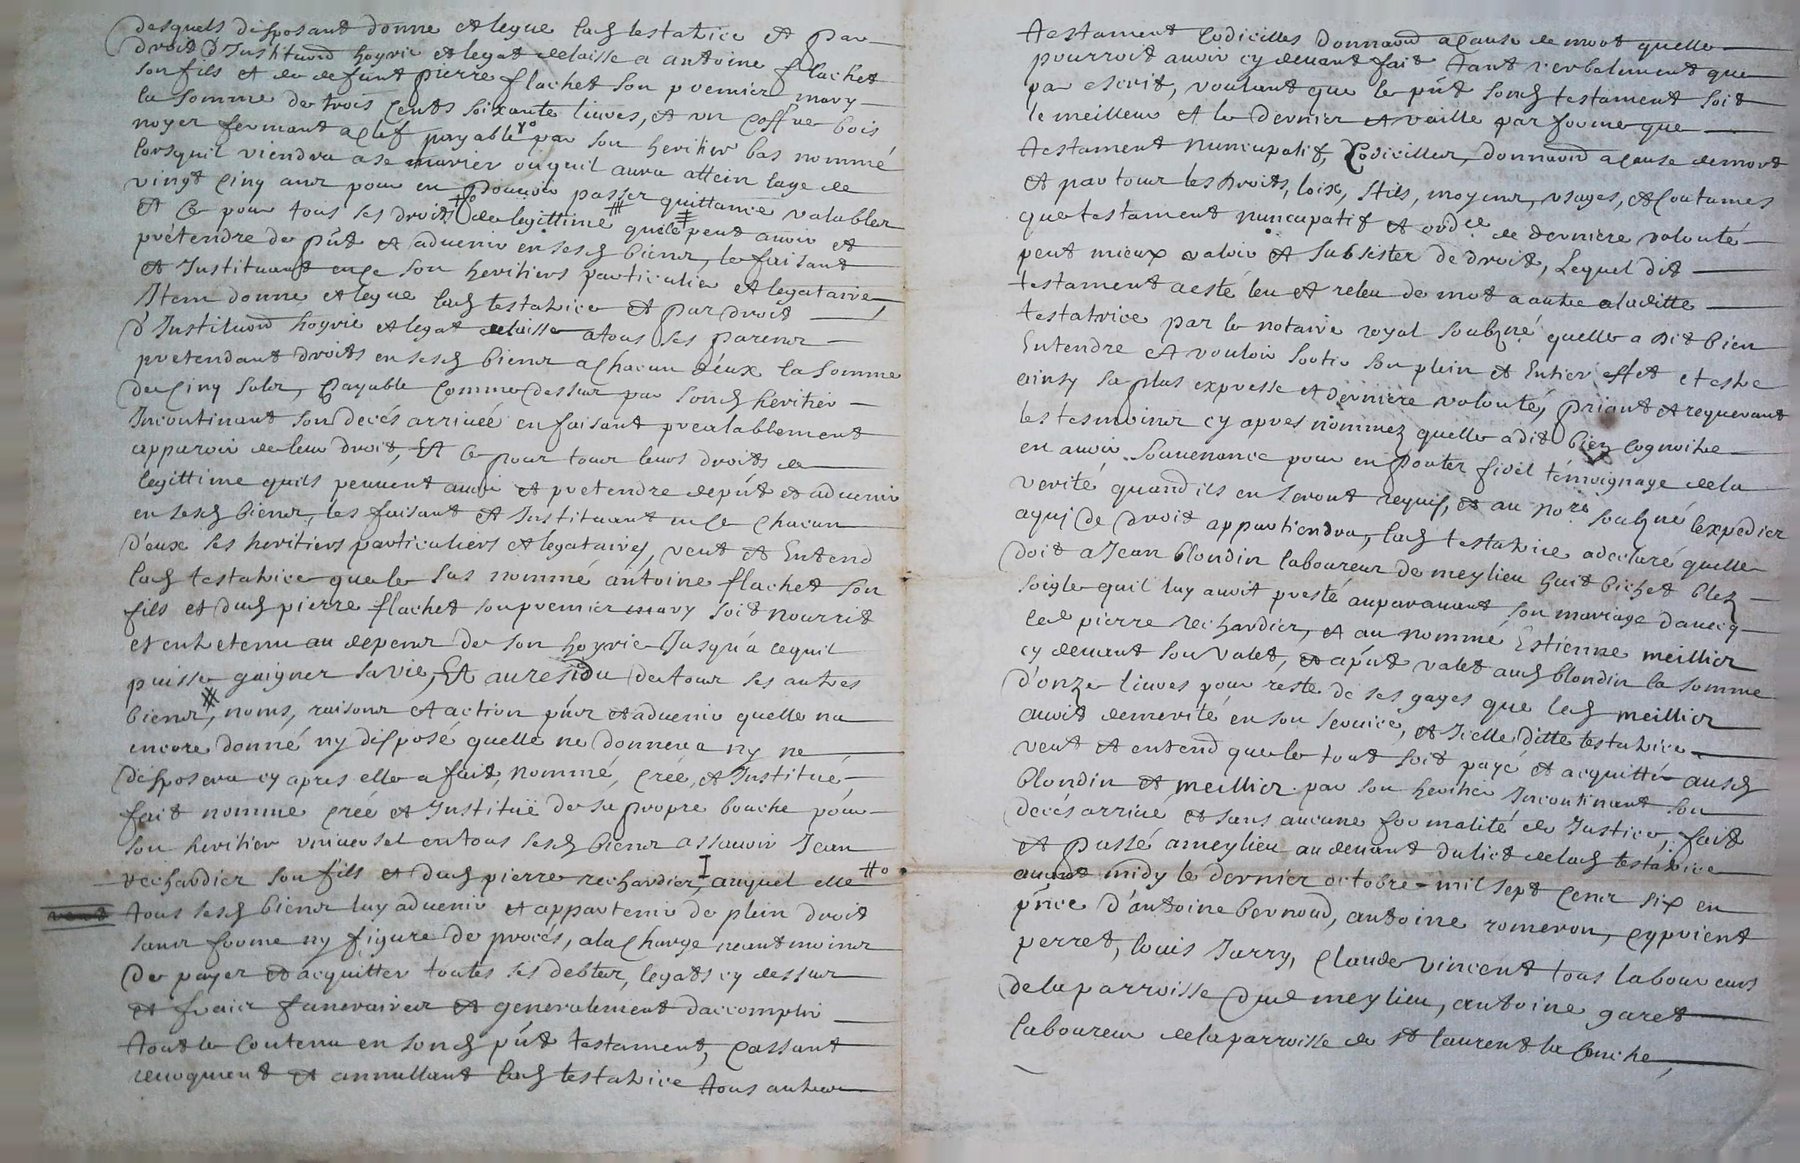 desquels disposant donne et legue lad testatrice et par
droit d'Institu͠on hoyrie et legat delaisse a antoine flachet
son fils et de defunt pierre flachet son premier mary
la somme de trois cents soixante liures, et vn coffre bois
noyer fermant a clef payable par son heritier bas nommé
lorsquil viendra a se marier ou quil aura attein lage de
vingt cinq ans pour en pouuoir passer quittance valable
et ce pour tous ses droits de legittime quil peut auoir et
prétendre de pñt et aduenir en sesd biens, le faisant
et Instituant en ce son heritiers particulier et legataire
Item donne et legue lad testatrice et par droit
d'Institu͠on hoyrie et legat delaisse a tous ses parens
pretendant droits en sesd biens a chacun d'eux la somme
de cinq sols, payable comme dessus par sond heritier
Incontinant son decés arriuée en faisant prealablement
apparoir de leur droit, Et ce pour tous leurs droits de
legittime quils peuuent auoir et pretendre de pñt et aduenir
en sesd biens, les faisant et Instituant en ce chacun
d'eux ses heritiers particuliers et legataires, veut et Entend
lad testatrice que le sus nommé antoine flachet son
fils et dud pierre flachet son premier mary soit nourrit
et entretenu au depens de son hoyrie Jusqu'a cequil
puisse gaigner sa vie, Et au residu de tous ses autres
biens, noms, raisons et action pñts et aduenir quelle na
encore donné ny disposé quelle ne donnera ny ne
disposera cy apres elle a fait, nommé, créé, et Institué
fait nomme créé et Instituë de sa propre bouche pour
son heritier vniuersel en tous sesd biens assauoir Jean
rechardier son fils et dud pierre rechardier, auquel elle
veut tous sesd biens luy aduenir et appartenir de plein droit
sans forme ny figure de procés, a la charge neantmoins
de payer et acquitter toutes ses debtes, legats cy dessus
et frais funeraires et generalement daccomplir
tout le contenu en sond pñt testament, cassant
reuoquant et annullant lad testatrice tous autres
testament Codicilles donna͠on a cause de mort quelle
pourroit auoir cy deuant fait tant verbalement que
par escrit, voulant que le pñt sond testament soit
le meilleur et le dernier et vaille par forme que
testament nuncupatif, Codicilles, donna͠on a cause de mort
et par tous les droits, loix, stils, moyens, vsages, et coutumes
que testament nuncupatif et ord.ce de derniere volonté
peut mieux valoir et subsister de droit, Lequel dit
testament a esté leu et releu de mot a autre a laditte
testatrice par le notaire royal soubz.né quelle a dit bien
Entendre et vouloir sortir son plein et Entier effet et estre
ainsy sa plus expresse et derniere volonté, priant et requerant
les tesmoins cy apres nommez quelle a dit bien cognoitre
en auoir souuenance pour en porter fidel témoignage de la
verité quand ils en seront requis, et au no.re soubzné lexpedier
a qui de droit appartiendra, lad testatrice a declaré quelle
doit a Jean blondin laboureur de meylieu huit bichet blez
soigle quil luy auoit presté auparauant son mariage d'auecq
led pierre rechardier, et au nommé Estienne meillier
cy deuant son valet, et apñt valet aud blondin la somme
d'onze liures pour reste de ses gages que led meillier
auoit demerité en son seruice, et Icelle ditte testatrice
veut et entend que le tout soit payé et acquitté ausd
blondin et meillier par son heritier Incontinant son
decés arriué et sans aucune formalité de Justice, fait
et passé a meylieu au deuant du lict de lad testatrice
auant midy le dernier octobre mil sept cens six en
p̃nce d'antoine bernoud, antoine romeron, cyprient
perret, louis Jarry, claude vincent tous laboureurs
de la parroisse dud meylieu, antoine garet
laboureur de la parroisse de st laurent la conche,